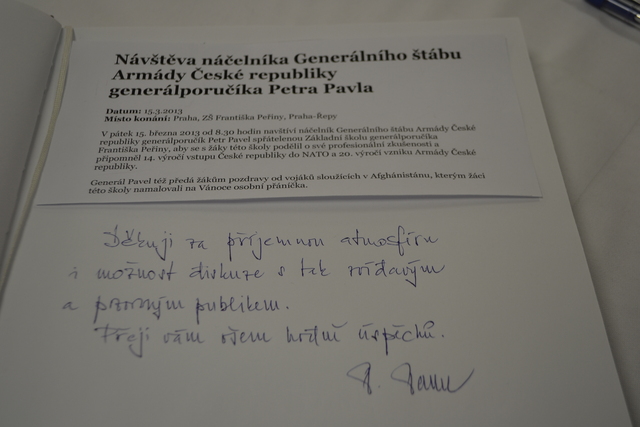 Návštěva náčelníka Generálního štábu
Armády České republiky
generálporučíka Petra Pavla
Datum: 15.3.2013
Místo konání: Praha, ZŠ Františka Peřiny, Praha-Řepy
V pátek 15. března 2013 od 8.30 hodin navštíví náčelník Generálního štábu Armády České
republiky generálporučík Petr Pavel spřátelenou Základní školu generálporučíka
Františka Peřiny, aby se s žáky této školy podělil o své profesionální zkušenosti a
připomněl 14. výročí vstupu České republiky do NATO a 20. výročí vzniku Armády České
republiky.
Generál Pavel též předá žákům pozdravy od vojáků sloužících v Afghánistánu, kterým žáci
této školy namalovali na Vánoce osobní přáníčka.
Děkuji za příjemnou atmosféru
i možnost diskuze s tak zvídavým
a pozorným publikem.
Přeji vám všem hodně úspěchů.
P. Pavel